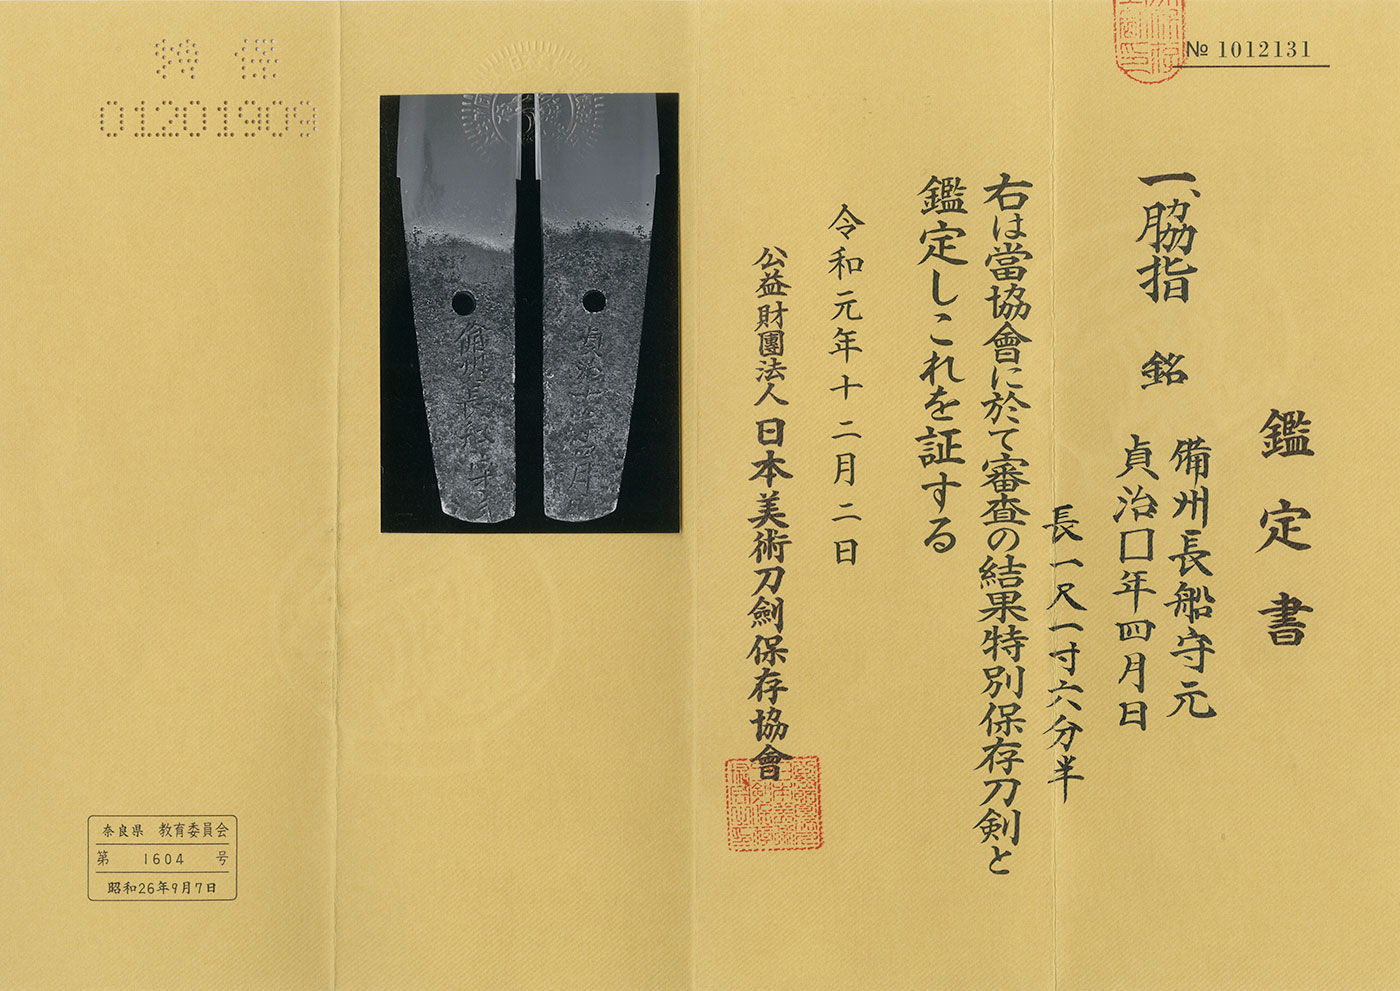 № 1012131
鑑定書
一、脇指 銘
備州長船守元
貞治□年四月日
長一尺一寸六分半
右は當協會に於て審査の結果特別保存刀剣と
鑑定しこれを証する
令和元年十二月二日
公益財團法人日本美術刀劍保存協會
特保
01201909
奈良県 教育委員会
第 1604 号
昭和26年9月7日
備州長船守元